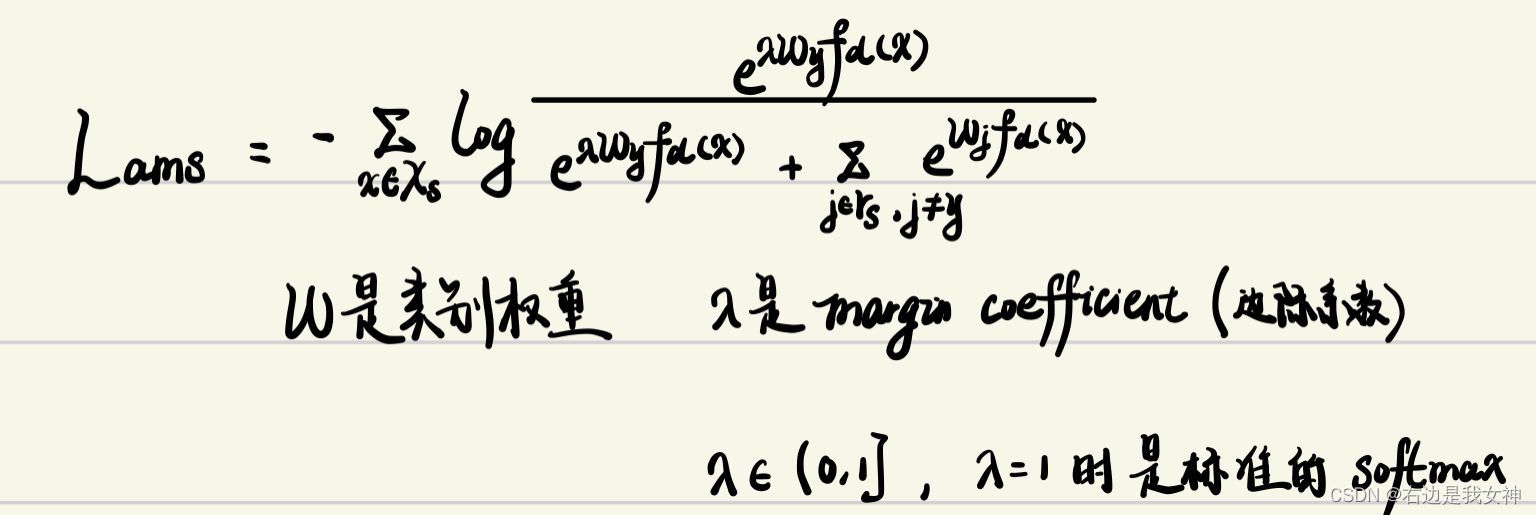 L_ams = - Σ_{x∈X_s} log \frac{e^{λW_y f_d(x)}}{e^{λW_y f_d(x)} + Σ_{j∈Y_s, j≠y} e^{W_j f_d(x)}}
W是类别权重 λ是 margin coefficient (边际系数)
λ∈(0,1], λ=1 时是标准的 softmax
CSDN @右边是我女神